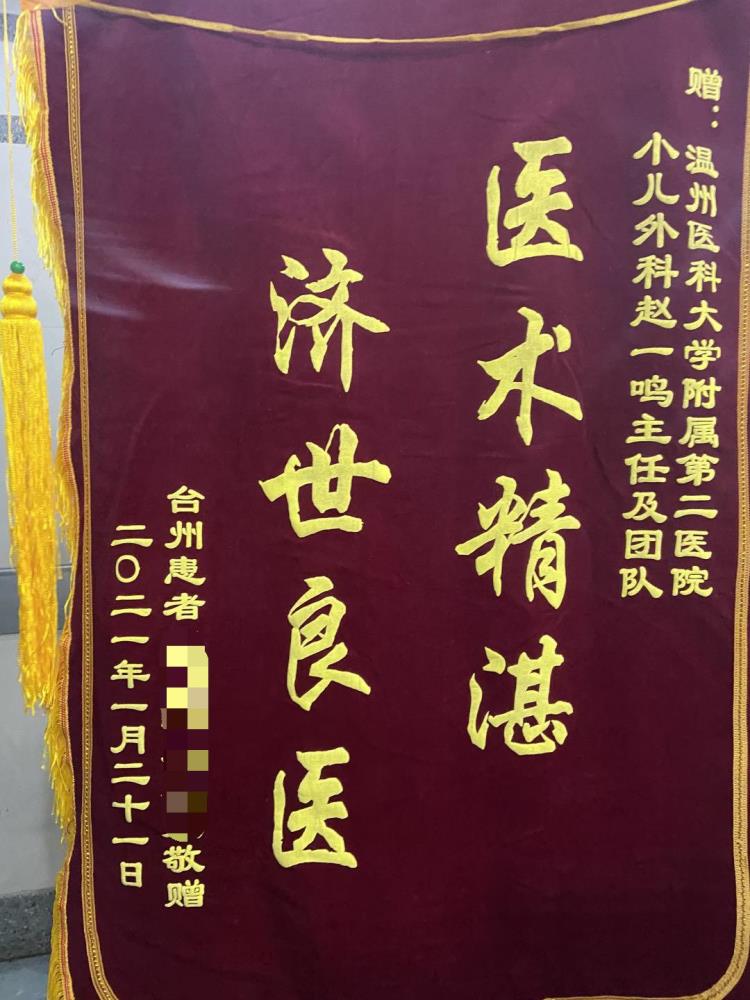 赠：温州医科大学附属第二医院
小儿外科赵一鸣主任及团队
医术精湛
济世良医
台州患者
敬赠
二〇二一年一月二十一日